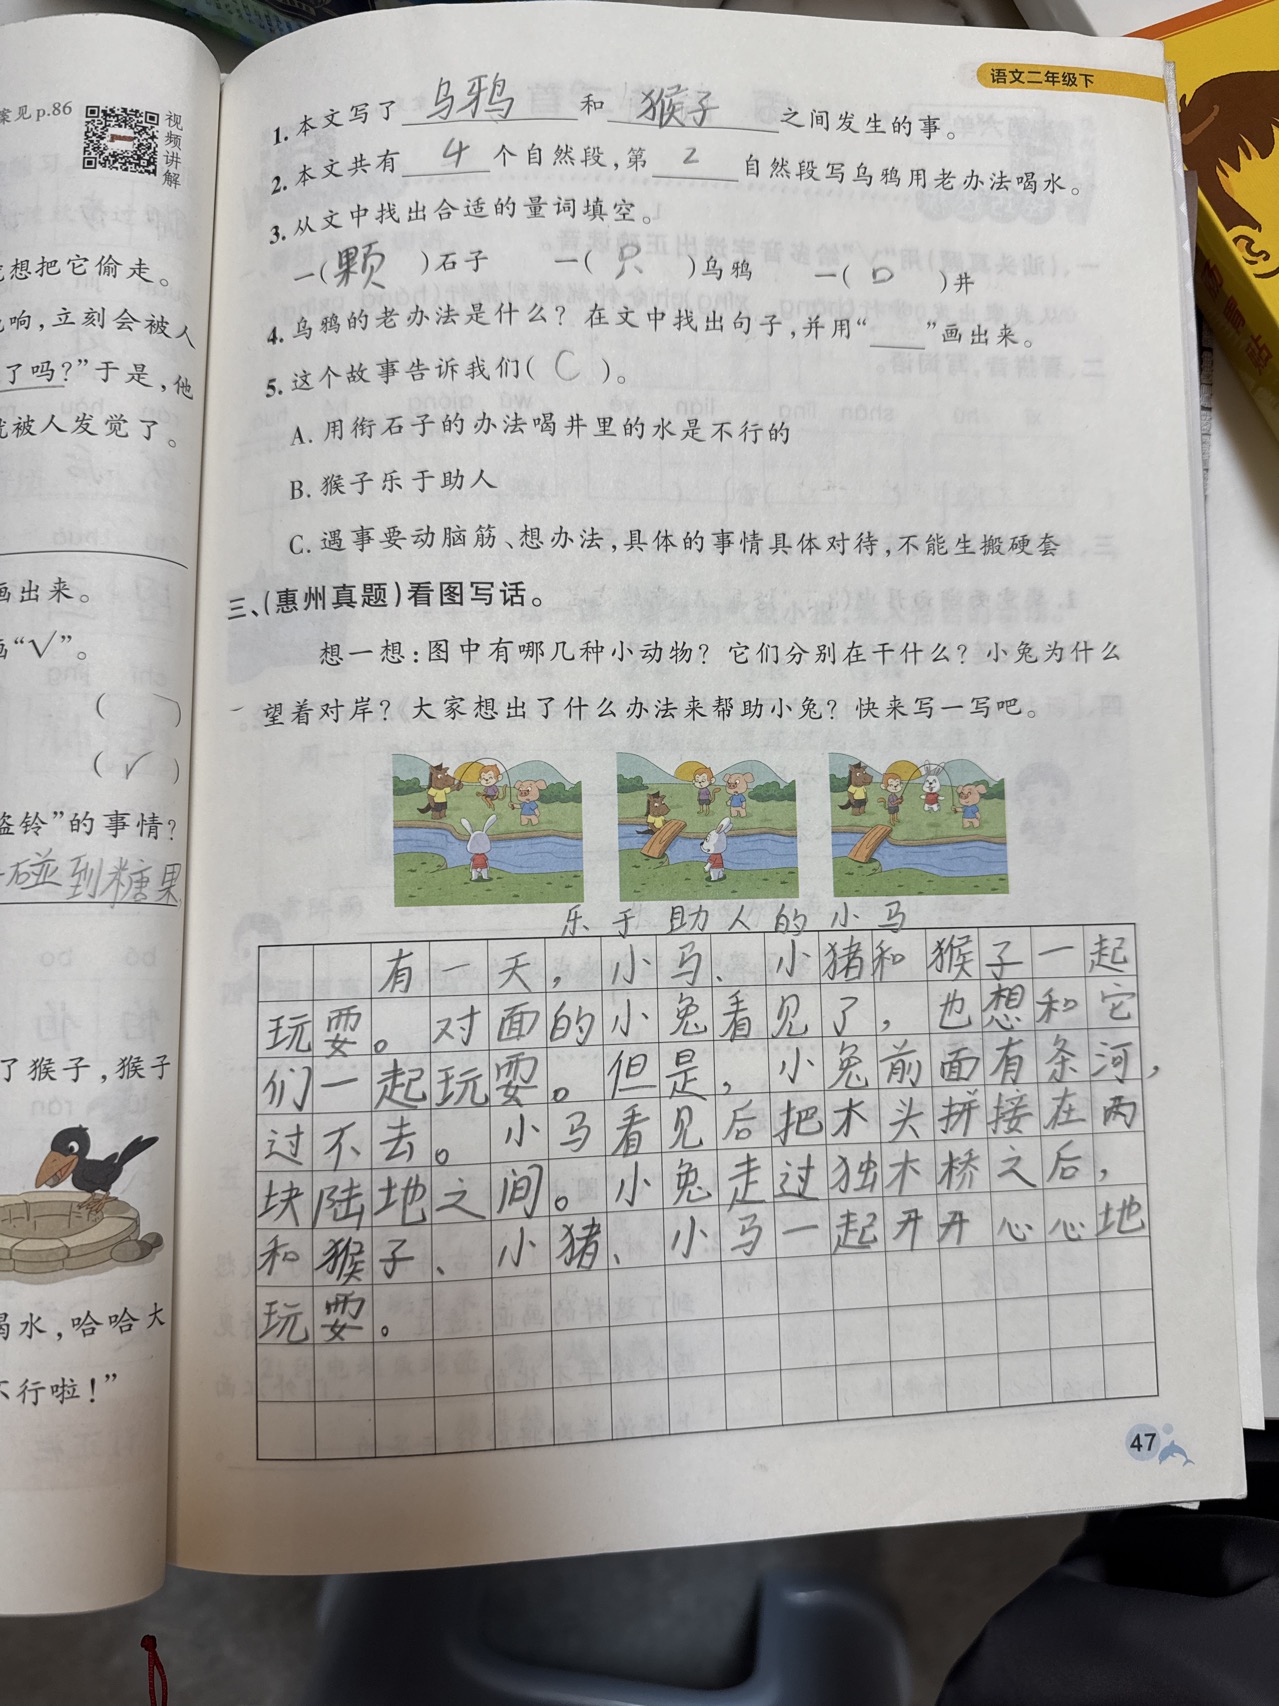 案见p.86
视频讲解
想把它偷走。
响,立刻会被人
了吗?”于是,他
就被人发觉了。
画出来。
画“√”。
( )
(√)
盗铃”的事情?
碰到糖果
了猴子,猴子
喝水,哈哈大
不行啦!”
语文二年级下
1. 本文写了 乌鸦 和 猴子 之间发生的事。
2. 本文共有 4 个自然段,第 2 自然段写乌鸦用老办法喝水。
3. 从文中找出合适的量词填空。
一(颗)石子 一(只)乌鸦 一(口)井
4. 乌鸦的老办法是什么? 在文中找出句子,并用“___”画出来。
5. 这个故事告诉我们( C )。
A. 用衔石子的办法喝井里的水是不行的
B. 猴子乐于助人
C. 遇事要动脑筋、想办法,具体的事情具体对待,不能生搬硬套
三、(惠州真题)看图写话。
想一想:图中有哪几种小动物? 它们分别在干什么? 小兔为什么
望着对岸? 大家想出了什么办法来帮助小兔? 快来写一写吧。
乐于助人的小马
有一天,小马、小猪和猴子一起
玩耍。对面的小兔看见了,也想和它
们一起玩耍。但是,小兔前面有条河,
过不去。小马看见后把木头拼接在两
块陆地之间。小兔走过独木桥之后,
和猴子、小猪、小马一起开开心心地
玩耍。
47